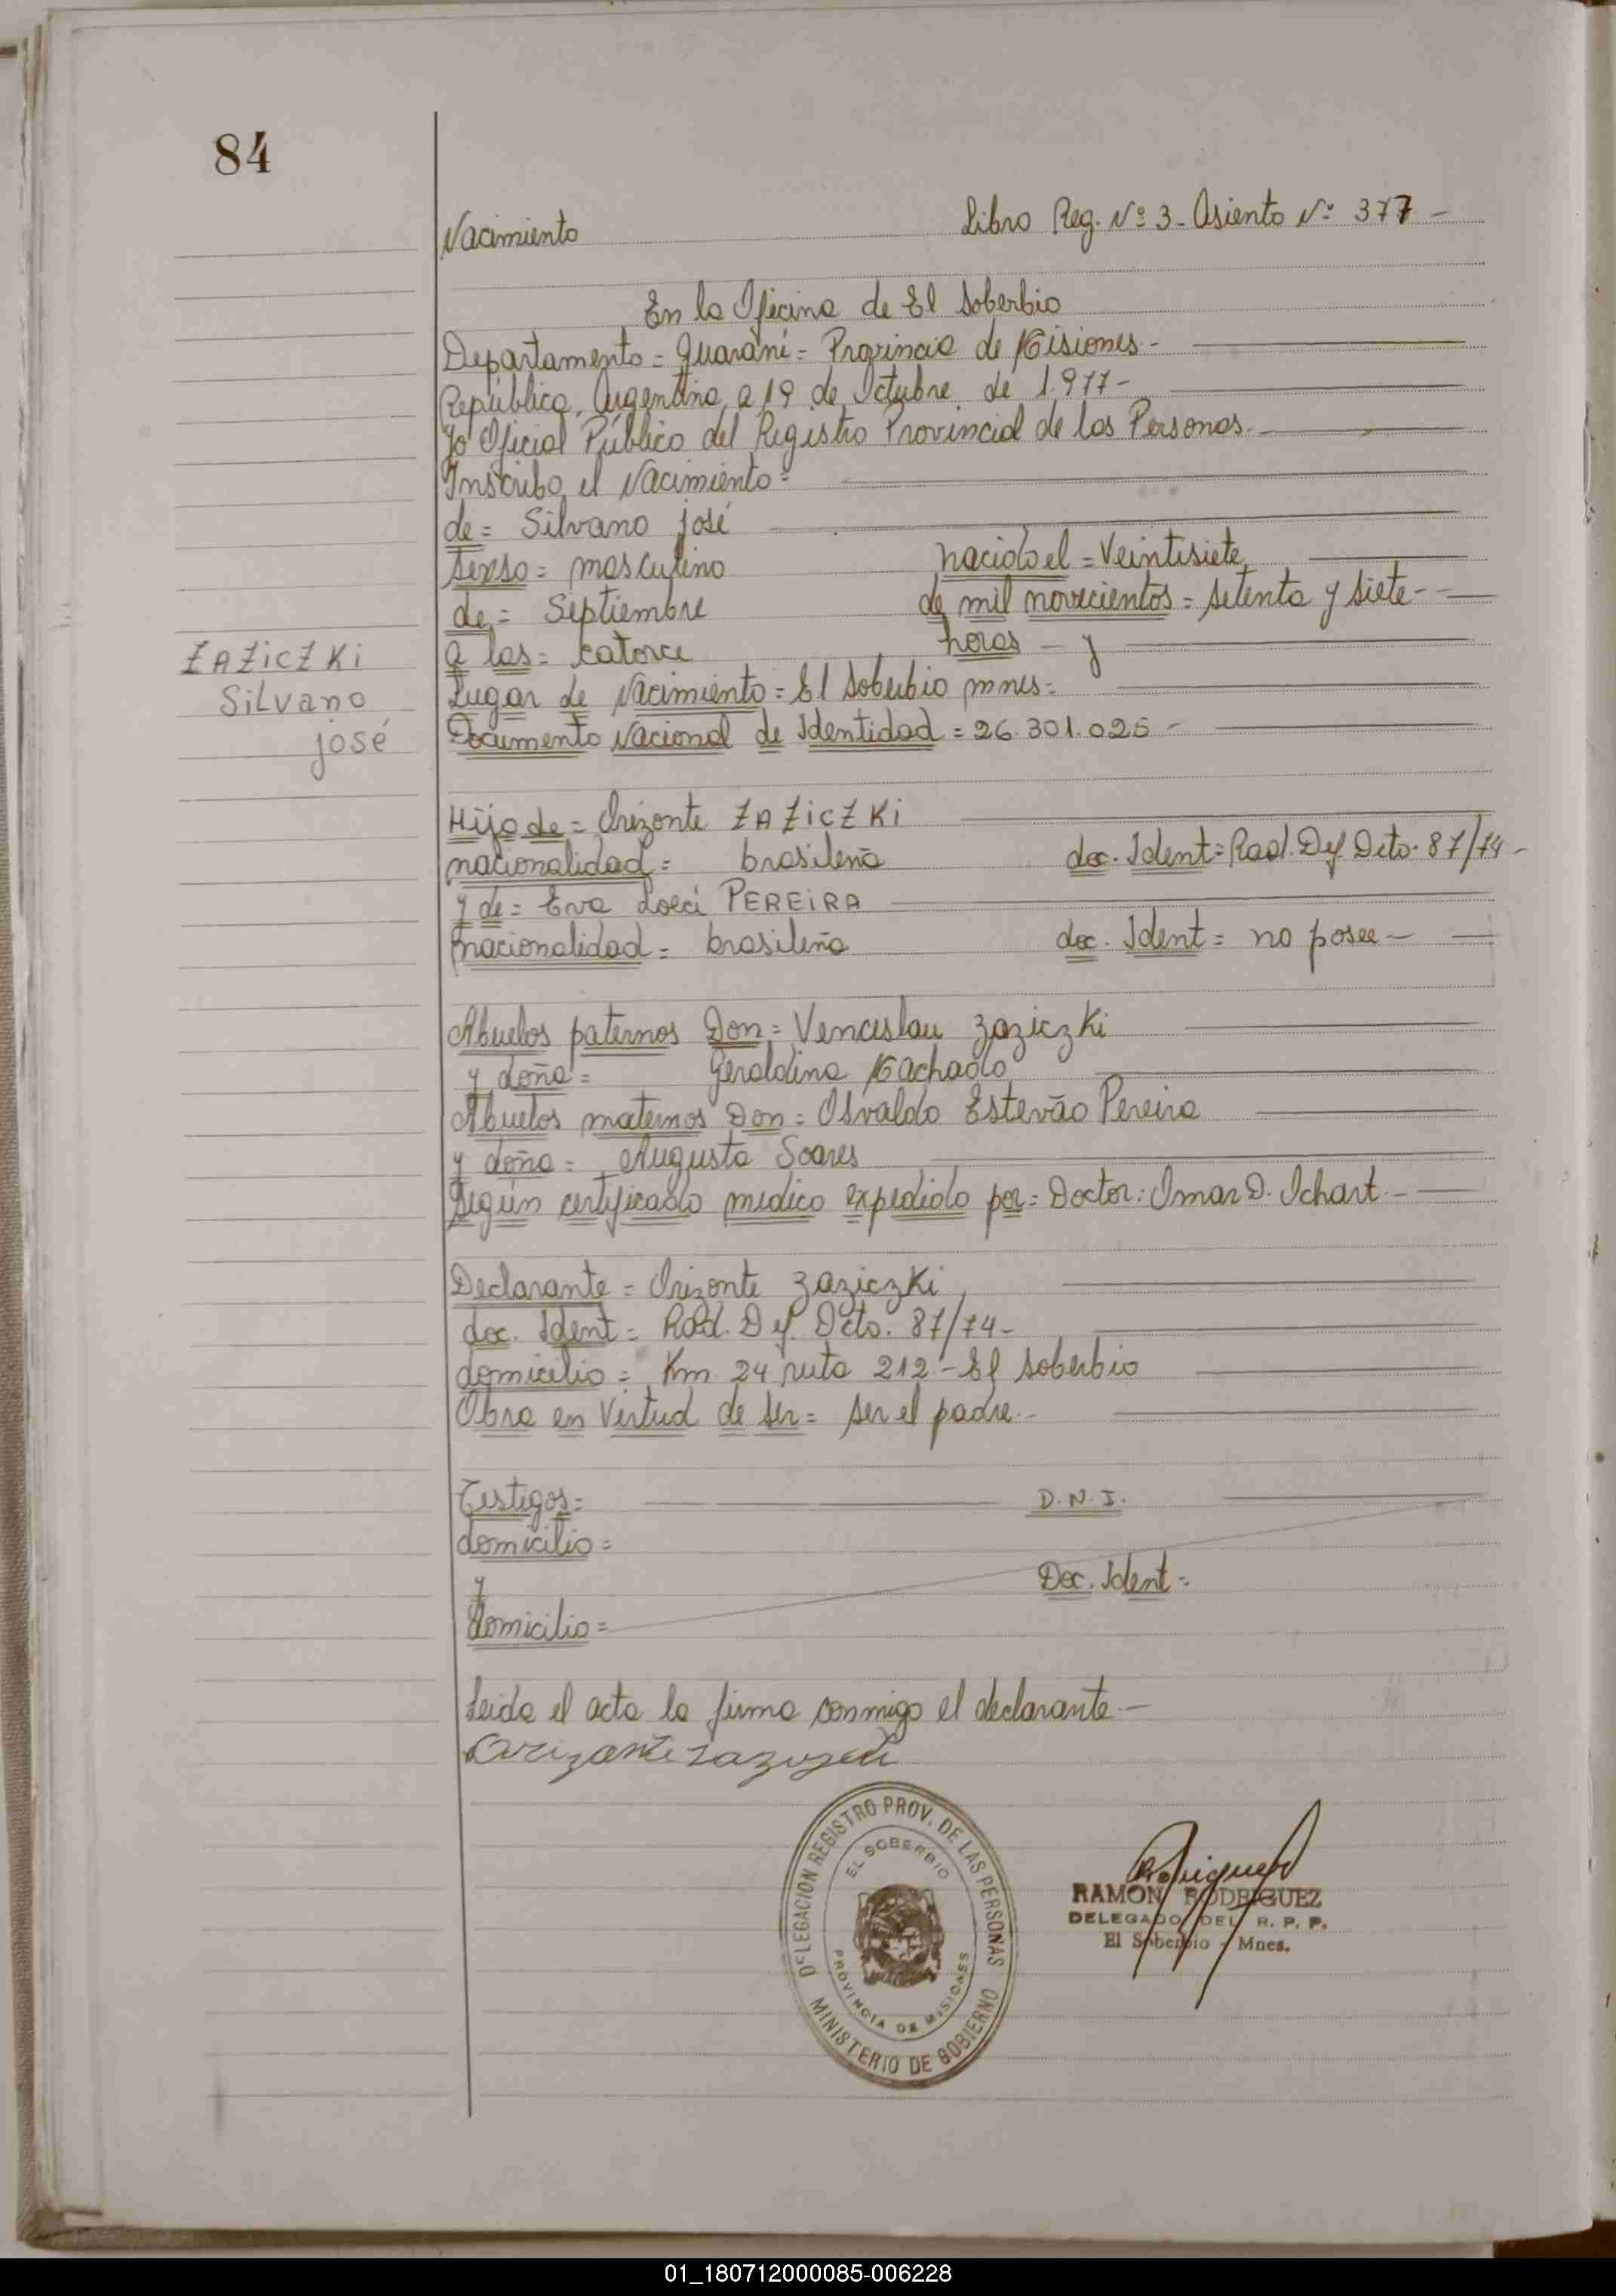 84
Nacimiento Libro Reg. Nº 3- Asiento Nº 377-
En la Oficina de El Soberbio
Departamento = Guaraní = Provincia de Misiones -
República, Argentina, a 19 de Octubre de 1.977-
Yo Oficial Público del Registro Provincial de las Personas.-
Inscribo el Nacimiento=
de = Silvano josé
sexso = masculino nacido el = Veintisiete
de = Septiembre de mil novecientos = setenta y siete-
a las = catorce horas - y
ZAZiCZKi
Silvano
josé
Lugar de Nacimiento = El Soberbio mnes=
Documento Nacional de Identidad = 26.301.025 -
Hijo de = Orizonte ZAZiCZKi
nacionalidad = brasileña doc. Ident = Rad. Def. Dcto. 87/74-
y de = Eva Loeci PEREiRA
nacionalidad = brasileña doc. Ident = no posee-
Abuelos paternos Don = Venceslau Zaziczki
y doña = Geraldina Machado
Abuelos maternos Don = Osvaldo Estevão Pereira
y doña = Augusta Soares
Según certificado medico expedido por = Doctor: Omar D. Ichart.-
Declarante = Orizonte Zaziczki
doc. Ident = Rad. Def. Dcto. 87/74-
domicilio = Km. 24 ruta 212 - El Soberbio
Obra en Virtud de ser = ser el padre.-
Testigos= D.N.I.
domicilio =
y Doc. Ident =
domicilio =
Leida el acta la firma conmigo el declarante.-
DELEGACION REGISTRO PROV. DE LAS PERSONAS
EL SOBERBIO
PROVINCIA DE MISIONES
MINISTERIO DE GOBIERNO
RAMON RODRIGUEZ
DELEGADO DEL R. P. P.
El Soberbio - Mnes.
01_180712000085-006228